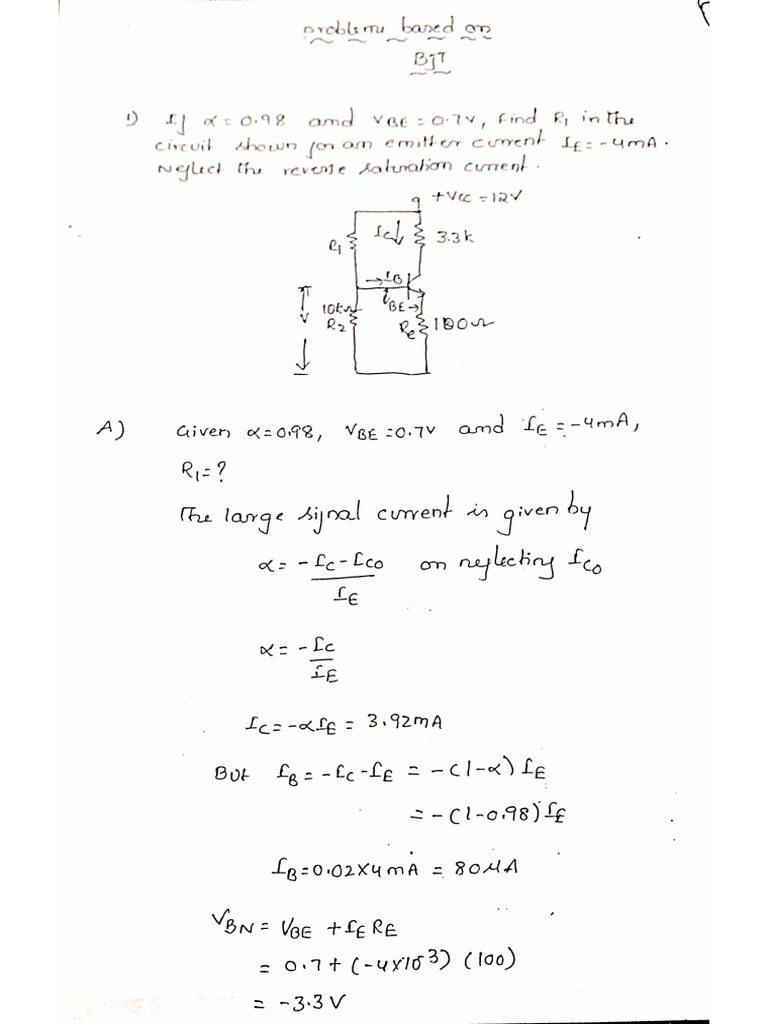 problems based on
BJT
1) If α = 0.98 and VBE = 0.7V, Find R1 in the
circuit shown for an emitter current IE = -4mA.
Neglect the reverse saturation current.
+Vcc = 12V
R1
Ic
3.3k
IB
VBE
V
10kΩ
R2
Re
100Ω
A) Given α = 0.98, VBE = 0.7V and IE = -4mA,
R1 = ?
The large signal current is given by
α = -Ic - Ico / IE on neglecting Ico
α = -Ic / IE
Ic = -αIE = 3.92mA
But IB = -Ic - IE = -(1-α) IE
= -(1-0.98) IE
IB = 0.02 X 4mA = 80μA
VBN = VBE + IE RE
= 0.7 + (-4x10^3) (100)
= -3.3V